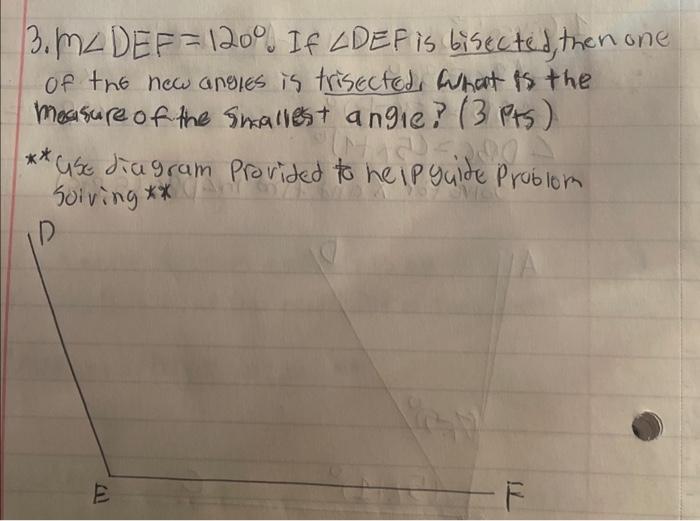 3. m∠DEF = 120°. If ∠DEF is bisected, then one
of the new angles is trisected, what is the
measure of the smallest angle? (3 pts)
**use diagram provided to help guide problom
solving**
D
E
F